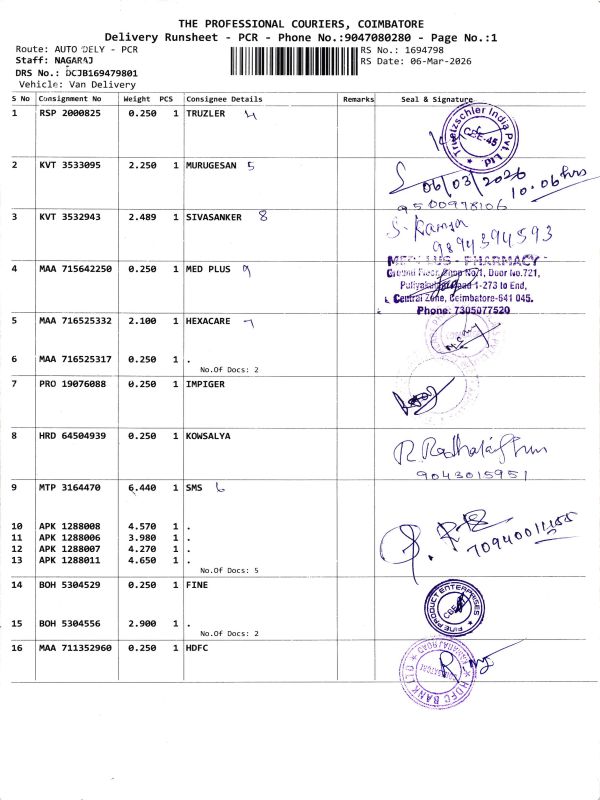 THE PROFESSIONAL COURIERS, COIMBATORE
Delivery Runsheet - PCR - Phone No.:9047080280 - Page No.:1
Route: AUTO DELY - PCR
RS No.: 1694798
Staff: NAGARAJ
RS Date: 06-Mar-2026
DRS No.: DCJB169479801
Vehicle: Van Delivery
S No Consignment No Weight PCS Consignee Details Remarks Seal & Signature
1 RSP 2000825 0.250 1 TRUZLER 4
Truetzschler India Pvt. Ltd
CBE-45
2 KVT 3533095 2.250 1 MURUGESAN 5
06/03/2026 10.06hrs
9500978106
3 KVT 3532943 2.489 1 SIVASANKER 8
9894394593
4 MAA 715642250 0.250 1 MED PLUS 9
MEDPLUS - PHARMACY
Ground Floor, Shop No/1, Door No.721,
Road 1-273 to End,
Central Zone, Coimbatore-641 045.
Phone: 7305077520
5 MAA 716525332 2.100 1 HEXACARE 7
6 MAA 716525317 0.250 1 .
No.Of Docs: 2
7 PRO 19076088 0.250 1 IMPIGER
8 HRD 64504939 0.250 1 KOWSALYA
9043015951
9 MTP 3164470 6.440 1 SMS 6
10 APK 1288008 4.570 1 .
11 APK 1288006 3.980 1 .
12 APK 1288007 4.270 1 .
13 APK 1288011 4.650 1 .
No.Of Docs: 5
14 BOH 5304529 0.250 1 FINE
FINE PRODUCT ENTERPRISES
15 BOH 5304556 2.900 1 .
No.Of Docs: 2
16 MAA 711352960 0.250 1 HDFC
HDFC BANK LTD